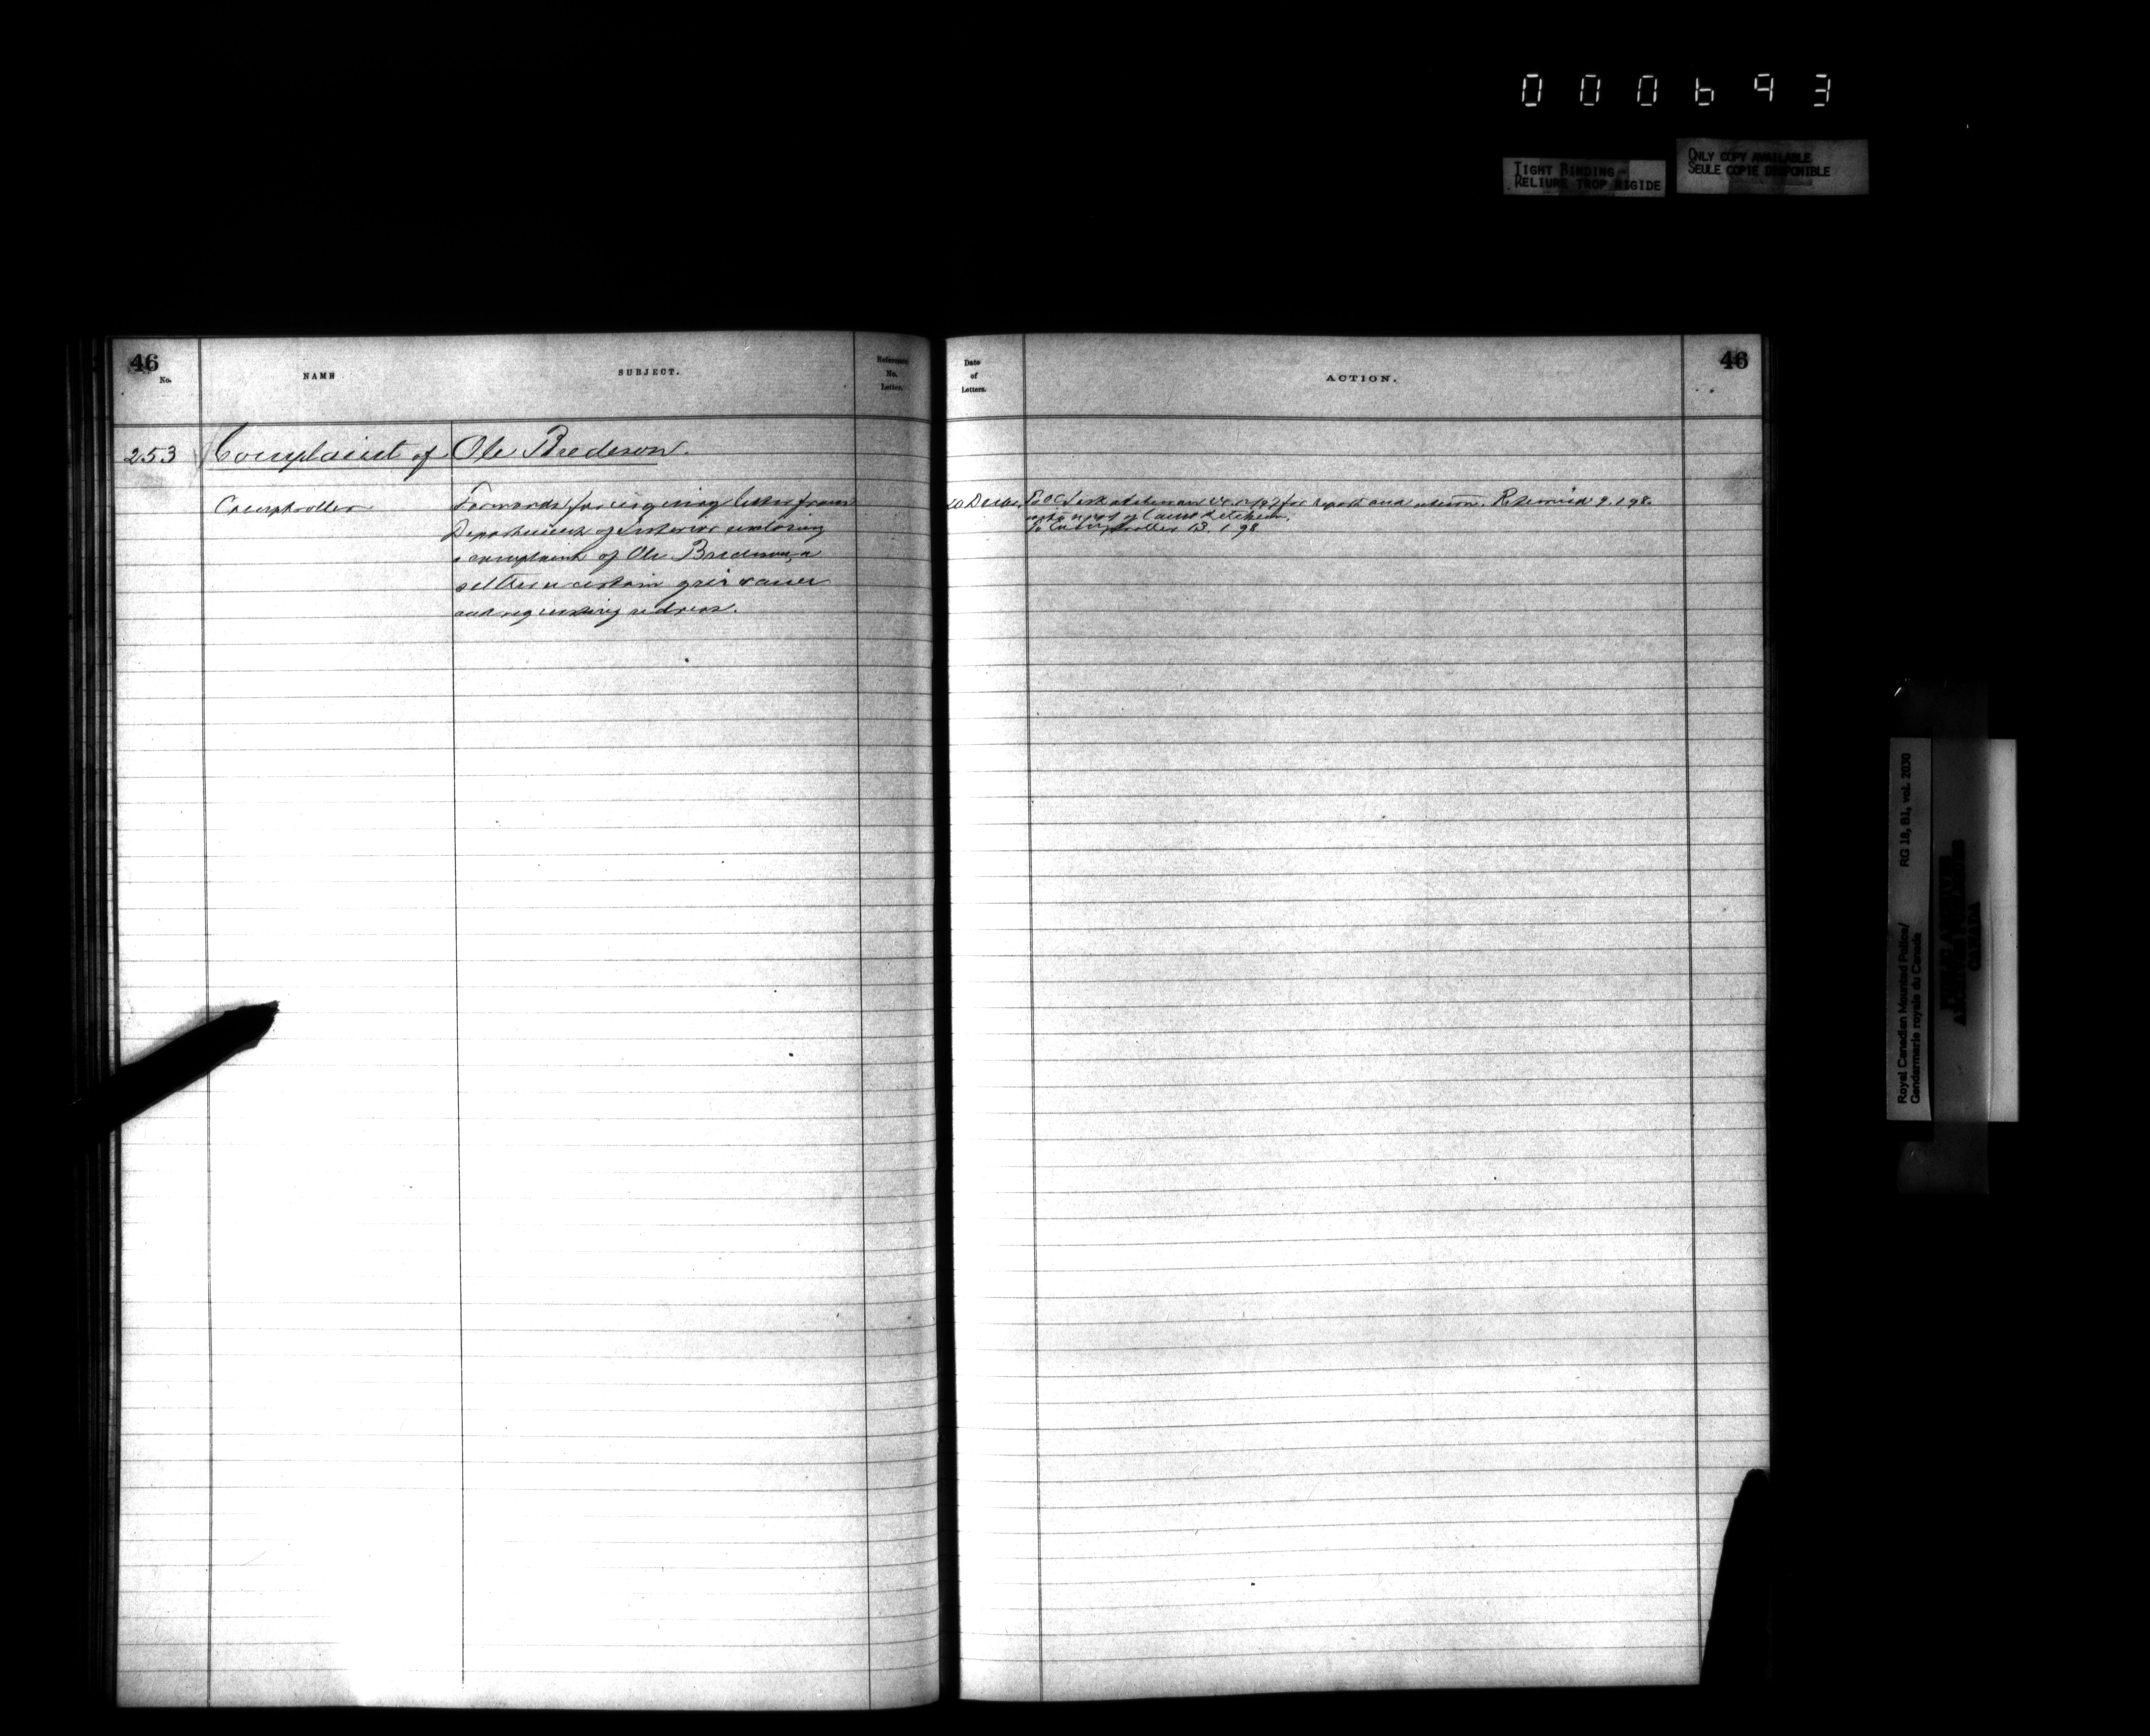 000693
TIGHT BINDING
RELIURE TROP RIGIDE
ONLY COPY AVAILABLE
SEULE COPIE DISPONIBLE
46
No.
NAME
SUBJECT.
Reference
No.
Letter.
Date
of
Letters.
ACTION.
46
253 Complaint of Ole Bredeson.
Comptroller
Forwards for enquiry letter from
Department of Interior enclosing
a complaint of Ole Bredeson, a
settler
and requesting redress.
To OC Saskatchewan for report and return. Returned 9.1.98.
with report of
To Comptroller 13.1.98
Royal Canadian Mounted Police/
Gendarmerie royale du Canada
RG 18, B1, vol. 2030
PUBLIC ARCHIVES
ARCHIVES PUBLIQUES
CANADA